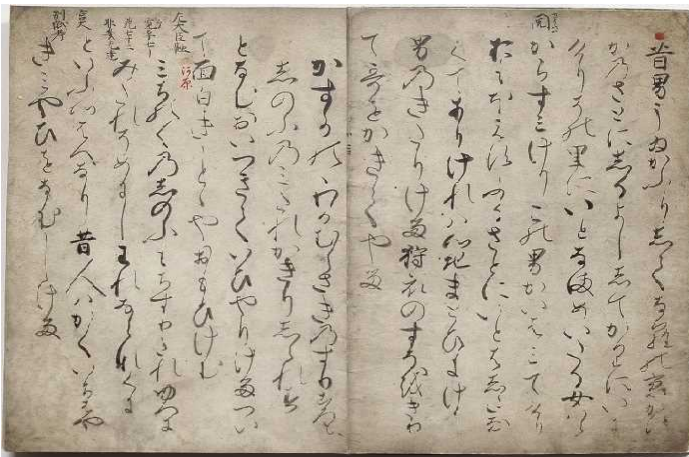 昔男うゐかうふりしてならの京かす
かのさとにしるよししてかりにいに
けりその里にいとなまめいたる女はら
からすみけりこの男かいまみてけり
おもほえすふるさとにいとはしたな
くてありけれは心地まとひにけり
男のきたりける狩衣のすそをきり
て哥をかきてやる
かすかのゝわかむらさきのすり衣
しのふのみたれかきりしられす
となむおいつきていひやりけるつい
て面白きことゝもやおもひけむ
左大臣融
河原
みちのくのしのふもちすりたれゆへに
みたれそめにしわれならなくに
といふ哥の心はへなり昔人はかくいちはや
きみやひをなむしける